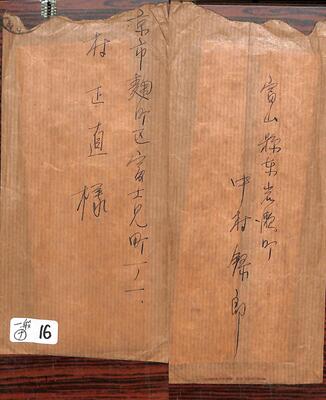 京市麹町区富士見町一ノ一、
村正直様
富山縣東岩瀬町
中村 郎
一般
16